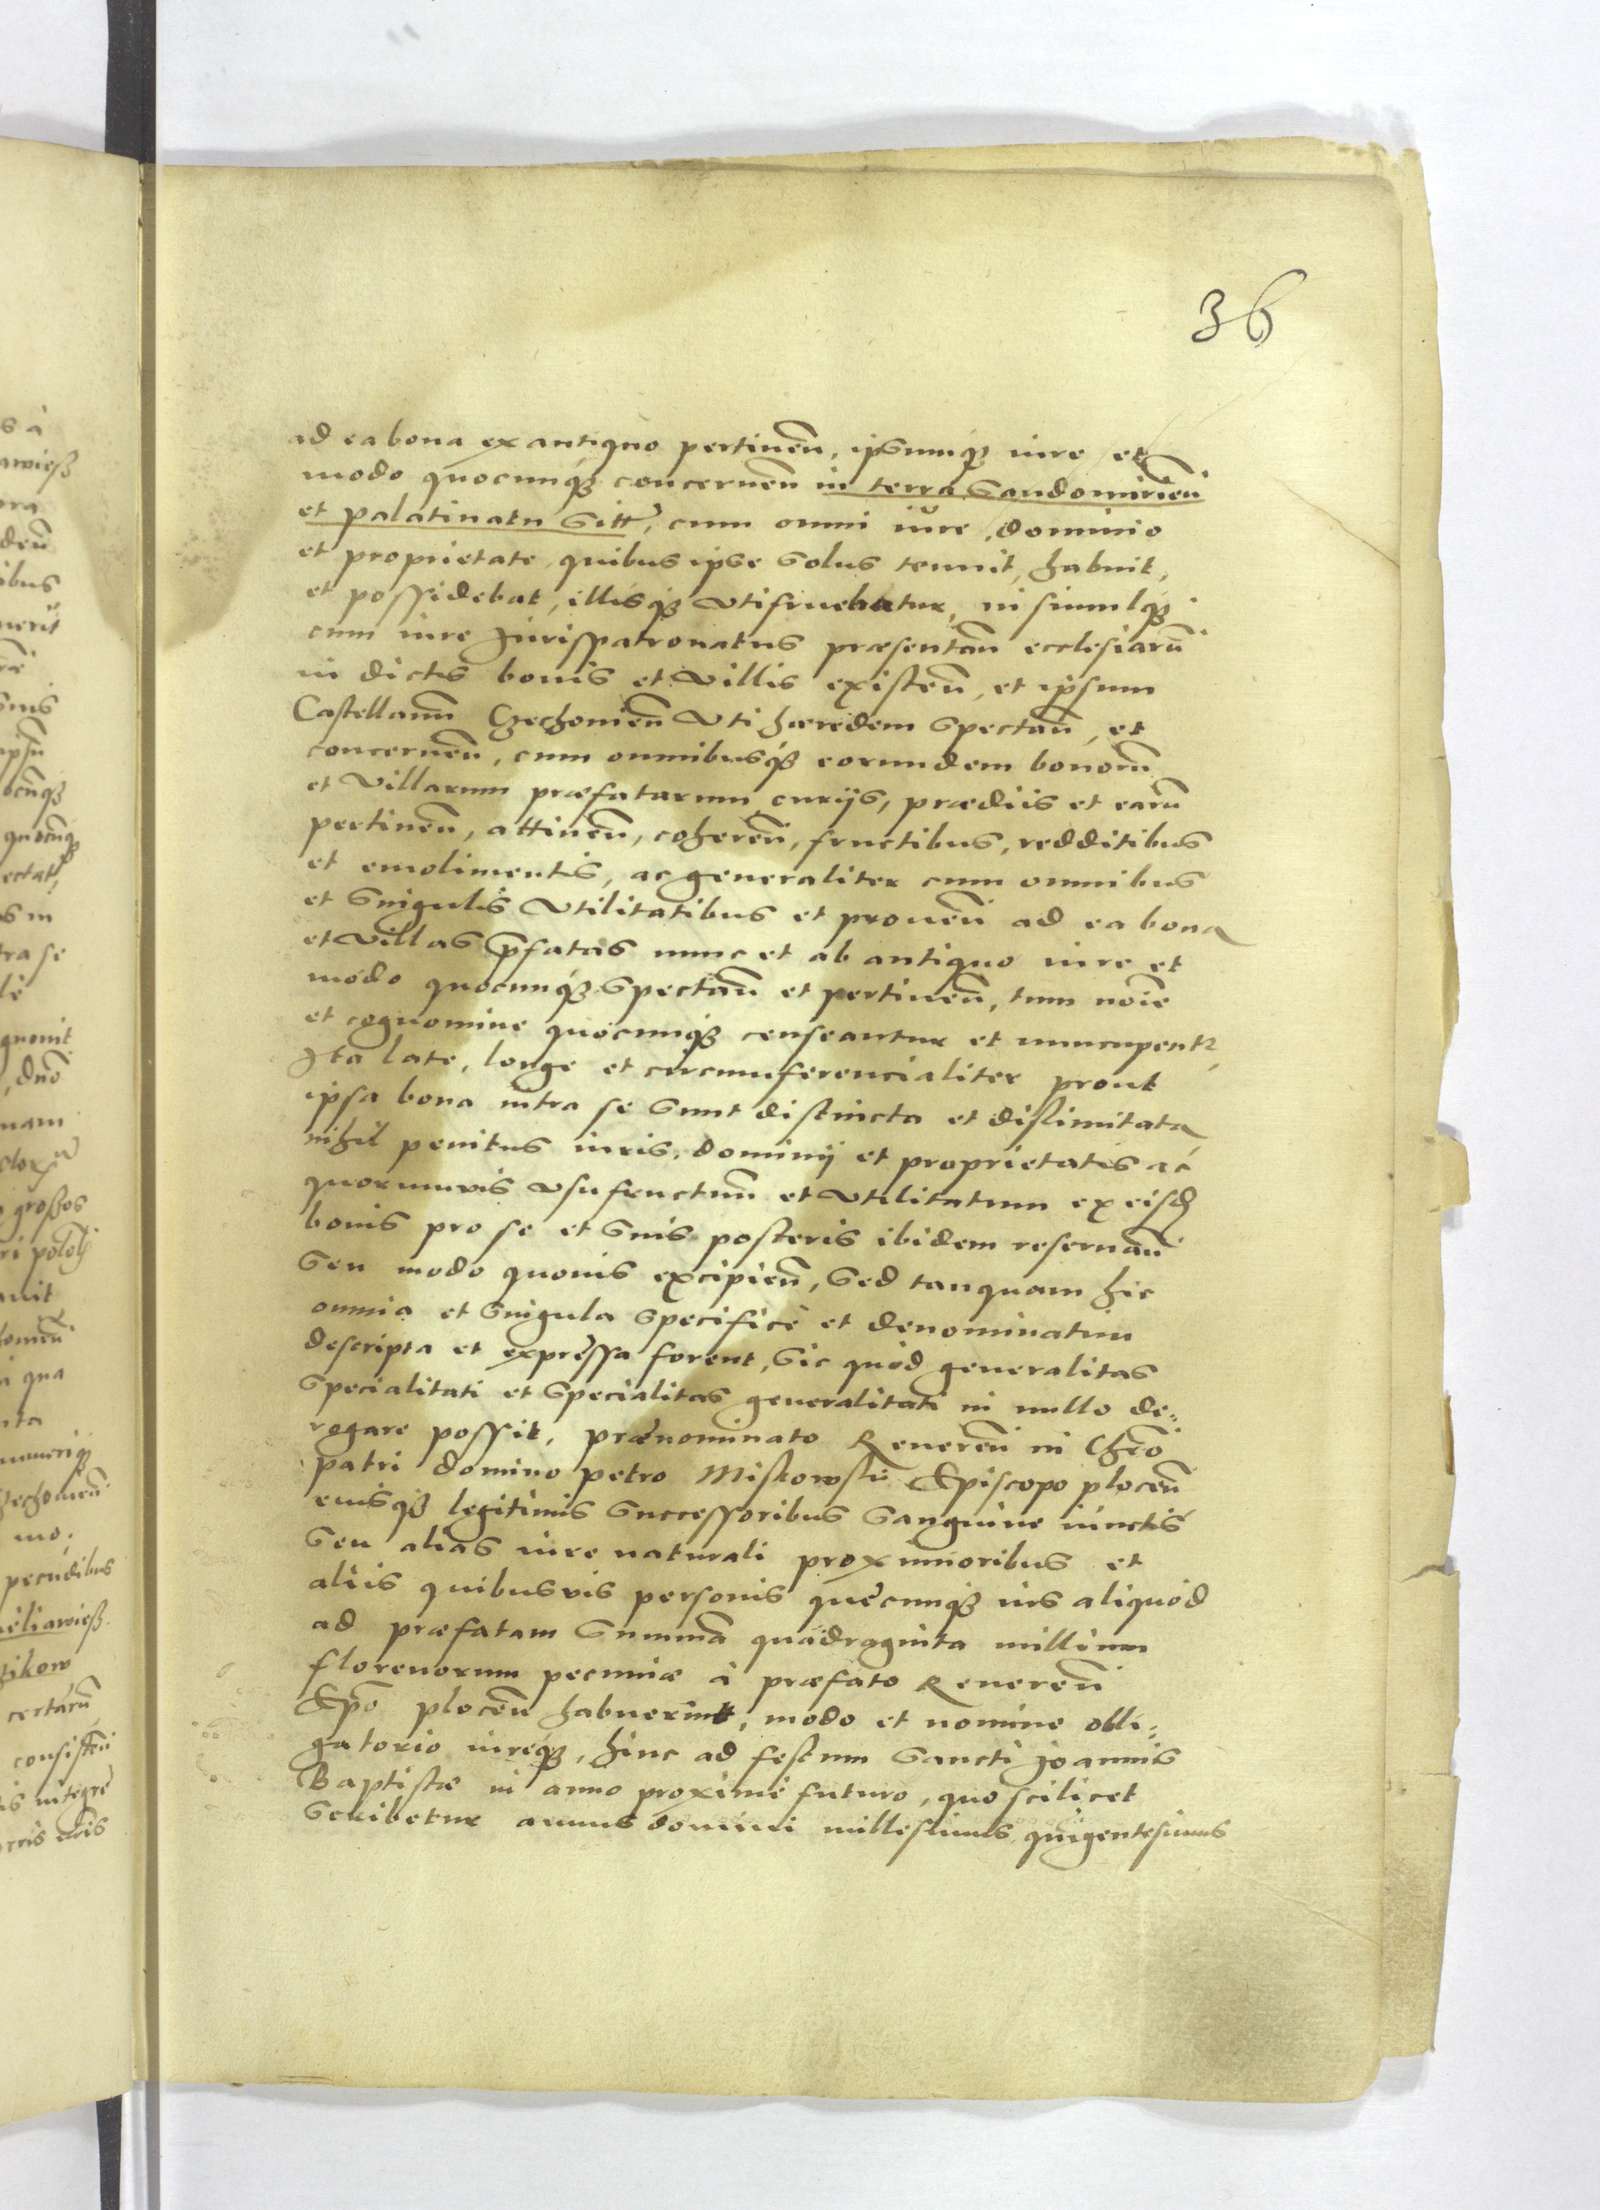 36
ad ea bona ex antiquo pertineñ, ipsumq3 iure et
modo quocunq3 concerneñ in terra Sandomirieñ
et palatinatu sitt, cum omni iure, dominio
et proprietate, quibus ipse solus tenuit, habuit,
et possidebat, illisq3 utifruebatur, in simulq3
cum iure Jurispatronatus præsentañ ecclesiarū
in dictis bonis et villis existeñ, et ipsum
Castellanū Czechovieñ uti hæredem spectañ, et
concerneñ, cum omnibusq3 eorundem bonorū
et villarum præfatarum curijs, prædiis et earū
pertineñ, attineñ, cohereñ, fructibus, redditibus
et emolimentis, ac generaliter cum omnibus
et singulis utilitatibus et proueñ ad ea bona
et villas p̄fatas nunc et ab antiquo iure et
modo quocunq3 spectañ et pertineñ, tum noīe
et cognomine quocunq3 censeantur et nuncupentr,
Ita late, longe et circumferencialiter prout
ipsa bona intra se sunt distincta et dislimitata
nihil penitus iuris, dominij et proprietatis ac
quorumvis usufructuū et utilitatum ex eisd
bonis pro se et suis posteris ibidem reseruañ
seu modo quouis excipieñ, sed tanquam hic
omnia et singula specificè et denominatim
descripta et expressa forent, sic quòd generalitas
specialitati et specialitas generalitati in nullo de=
rogare possit, prænominato Reuereñ in Chrō
patri domino petro Miskowski Episcopo ploceñ
eiusq3 legitimis successoribus sanguine iunctis
seu alias iure naturali proximioribus et
aliis quibusvis personis quecunq3 ius aliquod
ad præfatam summā quadraginta millium
florenorum pecuniæ à præfato Reuereñ
Epō ploceñ habuerint, modo et nomine obli=
gatorio iureq3, hinc ad festum sancti Joannis
Baptistæ in anno proximè futuro, quo scilicet
scribetur annus domini millesimus quigentesimus